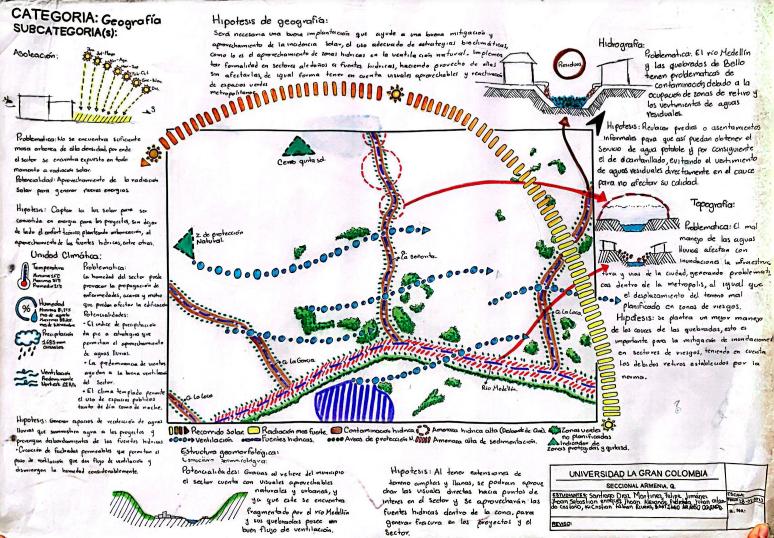 CATEGORIA: Geografía
SUBCATEGORIA(s):
Asoleación:
Problematica: No se encuentra suficiente
masa arborea de alta densidad, por ende
el sector se encuentra expuesto en todo
momento a radiación solar.
Potencialidad: Aprovechamiento de la radiación
Solar para generar nuevas energias.
Hipotesis: Captar la luz solar para ser
convertida en energia para los proyectos, sin dejar
de lado el confort termico, planteando arborización, el
aprovechamiento de las fuentes hidricas, entre otras.
Unidad Climática:
Temperatura
Humedad
Precipitación
Ventilación
Problematica:
La humedad del sector puede
provocar la propagación de
enfermedades, acaros y moho
que puedan afectar la edificación
Potencialidades:
• El indice de precipitación
permitan el aprovechamiento
de aguas lluvias.
• La predominancia de vientos
ayudan a la buena ventilación
del Sector.
• El clima templado permite
el uso de espacios publicos
tanto de dia como de noche.
Hipotesis: Generar espacios de recolección de aguas
lluvias que suministren agua a los proyectos y
prevengan desbordamientos de las fuentes hidricas
• Creación de fachadas permeables que permitan el
paso de ventilación que den flujo de ventilación y
disminuyan la humedad considerablemente.
Hipotesis de geografía:
Será necesaria una buena implantación que ayude a una buena mitigación y
aprovechamiento de la incidencia solar, el uso adecuado de estrategias bioclimáticas,
como lo es el aprovechamiento de zonas hidricas en la ventilación natural, implemen
tar formalidad en sectores aledaños a fuentes hidricas, haciendo provecho de ellas
sin afectarlas, de igual forma tener en cuenta visuales aprovechables y reactivación
de espacios verdes
metropolitanos.
Cerro quitasol
Z de protección
Natural.
Q. La García
Q. La Loca
Q. La Loca
Río Medellín
Hidrografía:
Problematica: El río Medellín
y las quebradas de Bello
tienen problematicas de
contaminación debido a la
ocupación de zonas de retiro y
los vertimientos de aguas
residuales.
Hipotesis: Reubicar predios o asentamientos
informales para que así puedan obtener el
Servicio de agua potable y por consiguiente
el de alcantarillado, evitando el vertimiento
de aguas residuales directamente en el cauce
para no afectar su calidad.
Topografía:
Problematica: El mal
manejo de las aguas
lluvias afectan con
inundaciones la infraestruc
tura y vias de la ciudad, generando problemati
cas dentro de la metropolis, al igual que
el desplazamiento del terreno mal
planificado en zonas de riesgos.
Hipotesis: Se plantea un mejor manejo
de los cauces de las quebradas, esto es
importante para la mitigación de inundaciones
en sectores de riesgos, teniendo en cuenta
los debidos retiros establecidos por la
norma.
Recorrido Solar
Radiación mas fuerte
Contaminación hidrica
Zonas verdes
no planificadas
Ventilación
Fuentes hidricas.
Amenaza alta de sedimentación.
Indicador de
Zonas protegidas y quitasol.
Estructura geomorfológica:
Potencialidades: Gracias al relieve del municipio
el sector cuenta con visuales aprovechables
naturales y urbanas, y
ya que este se encuentra
fragmentado por el río Medellín
y sus quebradas posee un
buen flujo de ventilación.
Hipotesis: Al tener extensiones de
terreno amplias y llanas, se podran aprove
char las visuales directas hacia puntos de
interes en el sector y se aprovecharán las
fuentes hidricas dentro de la zona, para
generar frescura en los proyectos y el
Sector.
UNIVERSIDAD LA GRAN COLOMBIA
SECCIONAL ARMENIA, Q.
ESTUDIANTES: Santiago Diaz Martinez, Felipe Jimenez
REVISO:
ESCALA:
FECHA: